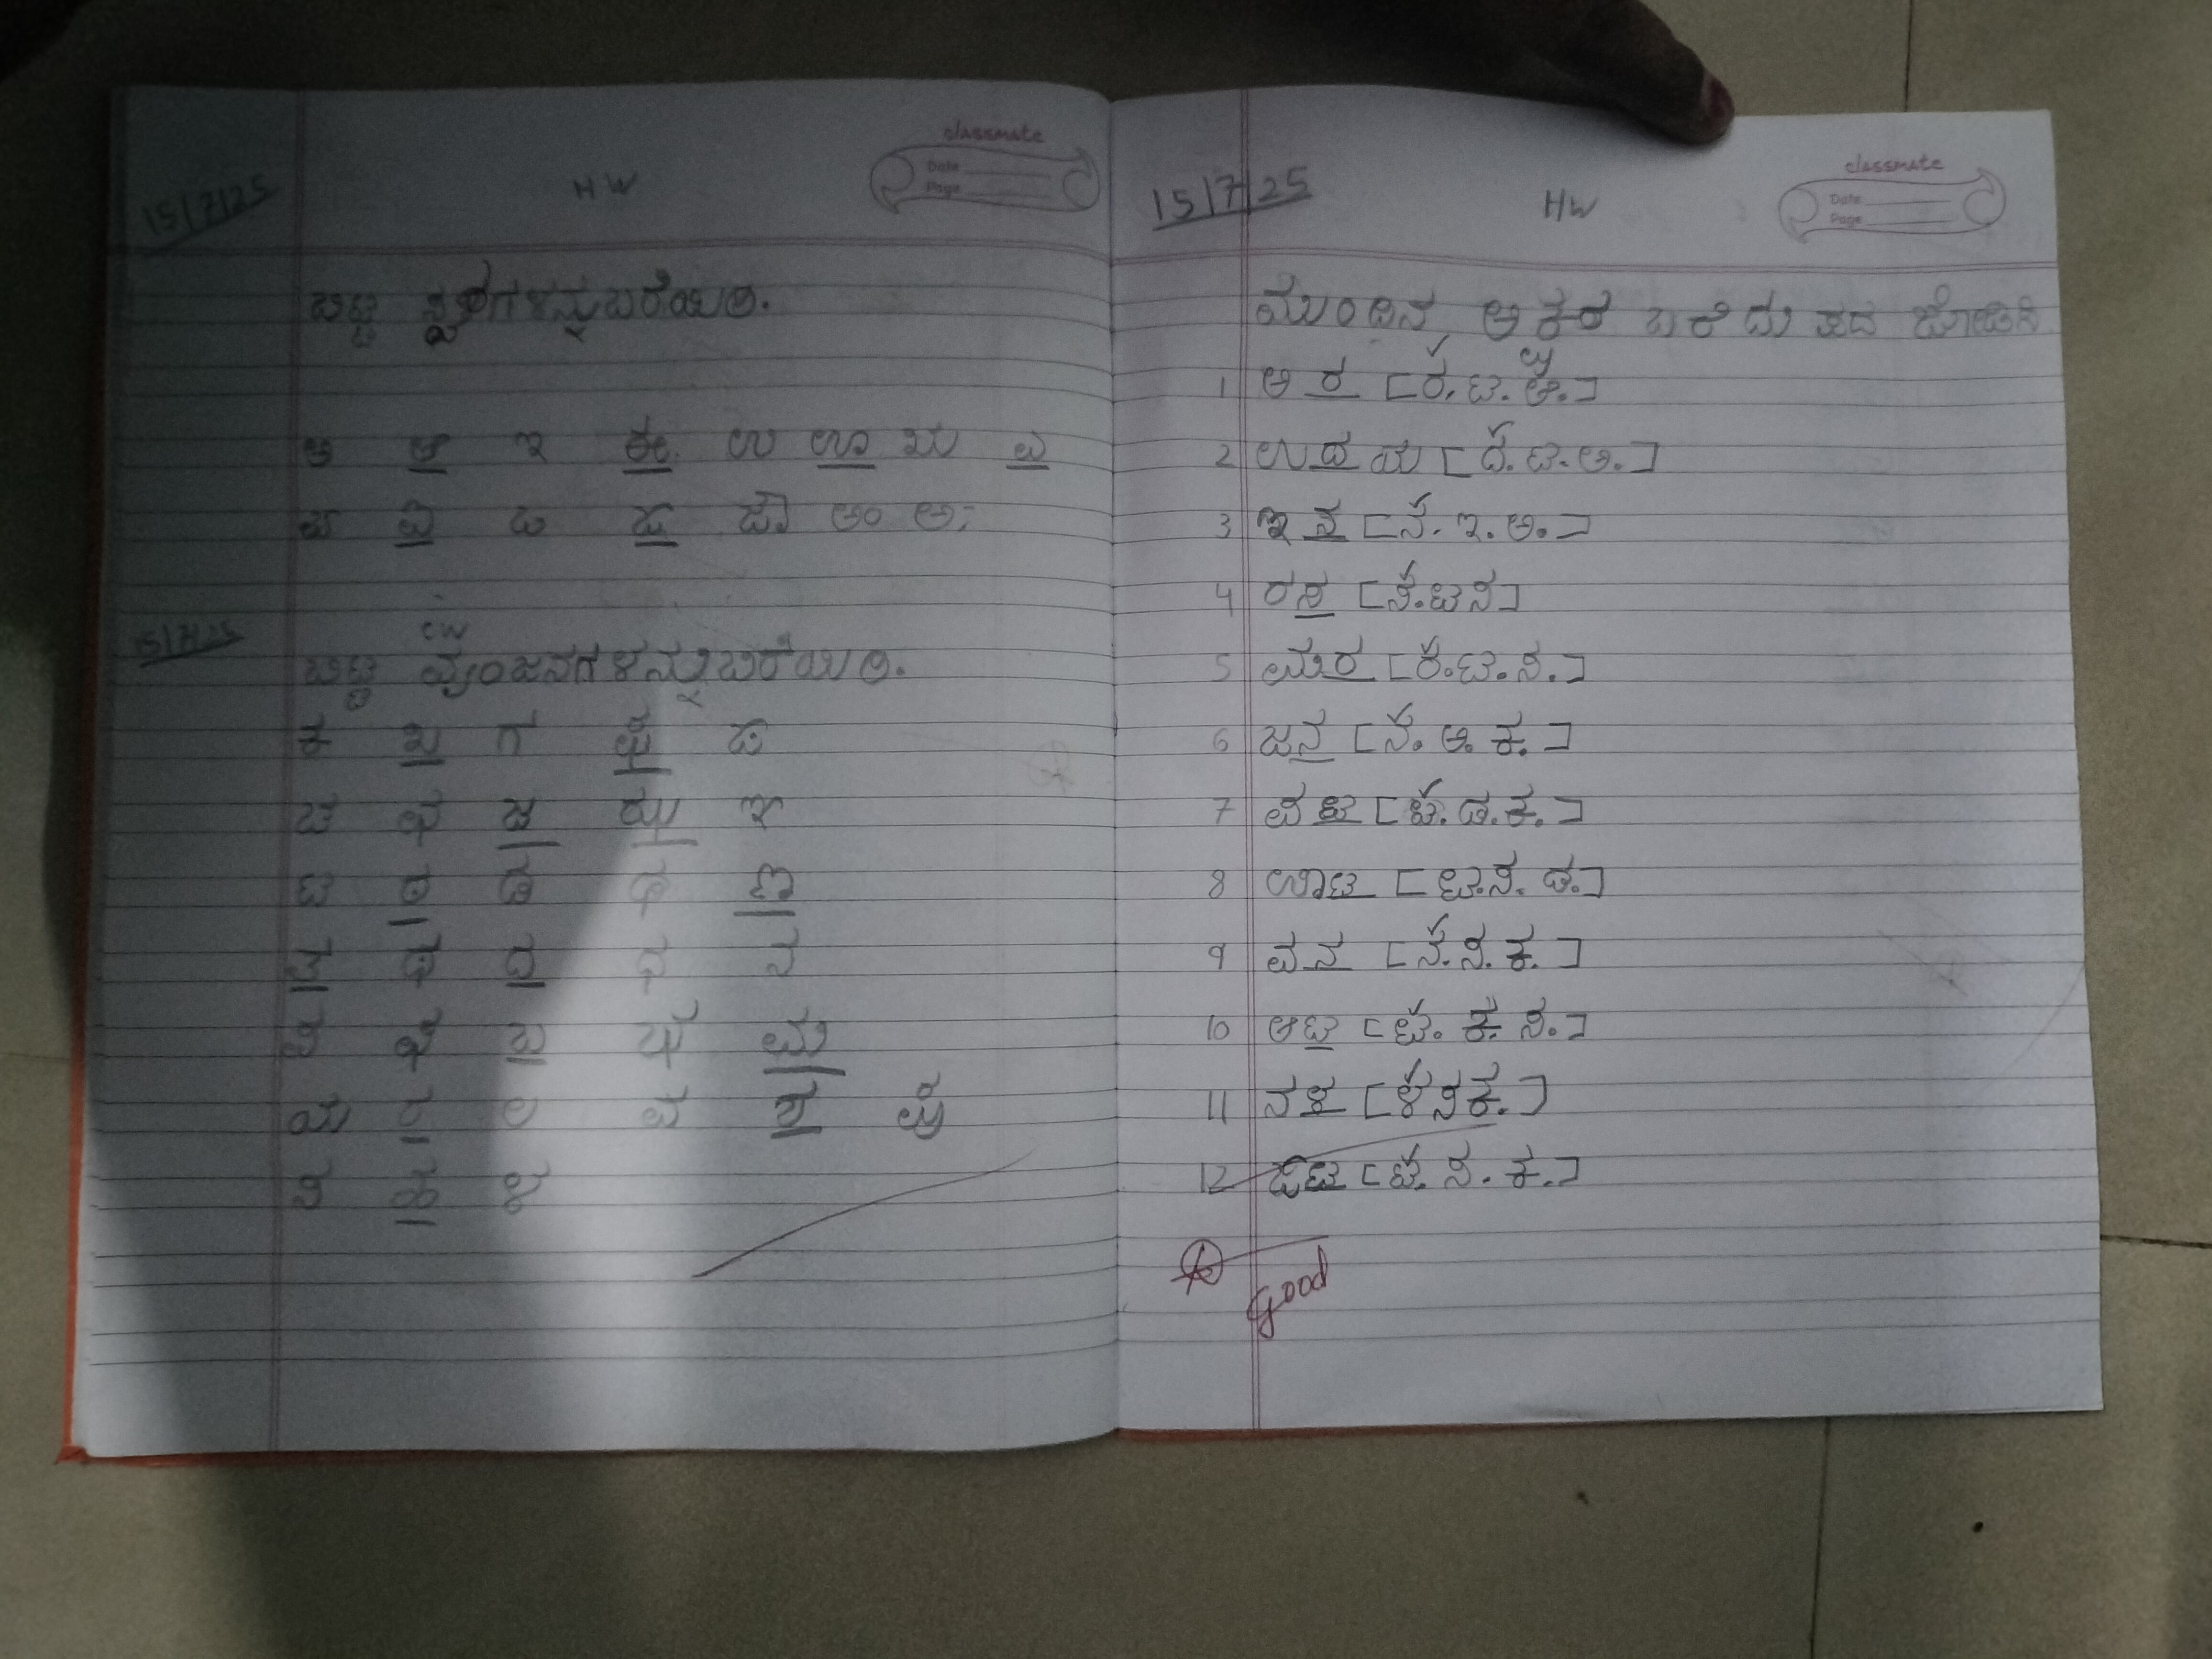 classmate
Date
Page
15/7/25 HW
ಬಿಟ್ಟ ಸ್ವರಗಳನ್ನು ಬರೆಯಿರಿ.
ಅ ಆ ಇ ಈ ಉ ಊ ಋ ಎ
ಏ ಐ ಒ ಓ ಔ ಅಂ ಅಃ
15/7/25 CW
ಬಿಟ್ಟ ವ್ಯಂಜನಗಳನ್ನು ಬರೆಯಿರಿ.
ಕ ಖ ಗ ಘ ಙ
ಚ ಛ ಜ ಝ ಞ
ಟ ಠ ಡ ಢ ಣ
ತ ಥ ದ ಧ ನ
ಪ ಫ ಬ ಭ ಮ
ಯ ರ ಲ ವ ಶ ಷ
ಸ ಹ ಳ
classmate
Date
Page
15/7/25 HW
ಮುಂದಿನ ಅಕ್ಷರ ಬರೆದು ಪದ ಜೋಡಿಸಿ
1 ಅ ರ [ರ. ಟ. ಅ.]
2 ಉ ದ ಯ [ದ. ಟ. ಅ.]
3 ಇ ನ [ನ. ಇ. ಅ.]
4 ರಸ [ಸ. ಟ ನ]
5 ಮರ [ರ. ಟ. ಸ.]
6 ಜನ [ನ. ಅ. ಕ.]
7 ವಟ [ಟ. ಡ. ಕ.]
8 ಊಟ [ಟ. ಸ. ಡ.]
9 ವನ [ನ. ಸ. ಕ.]
10 ಆಟ [ಟ. ಕ. ಸ.]
11 ನಳ [ಳ ಸ ಕ.]
12 ಓಟ [ಟ. ಸ. ಕ.]
Good